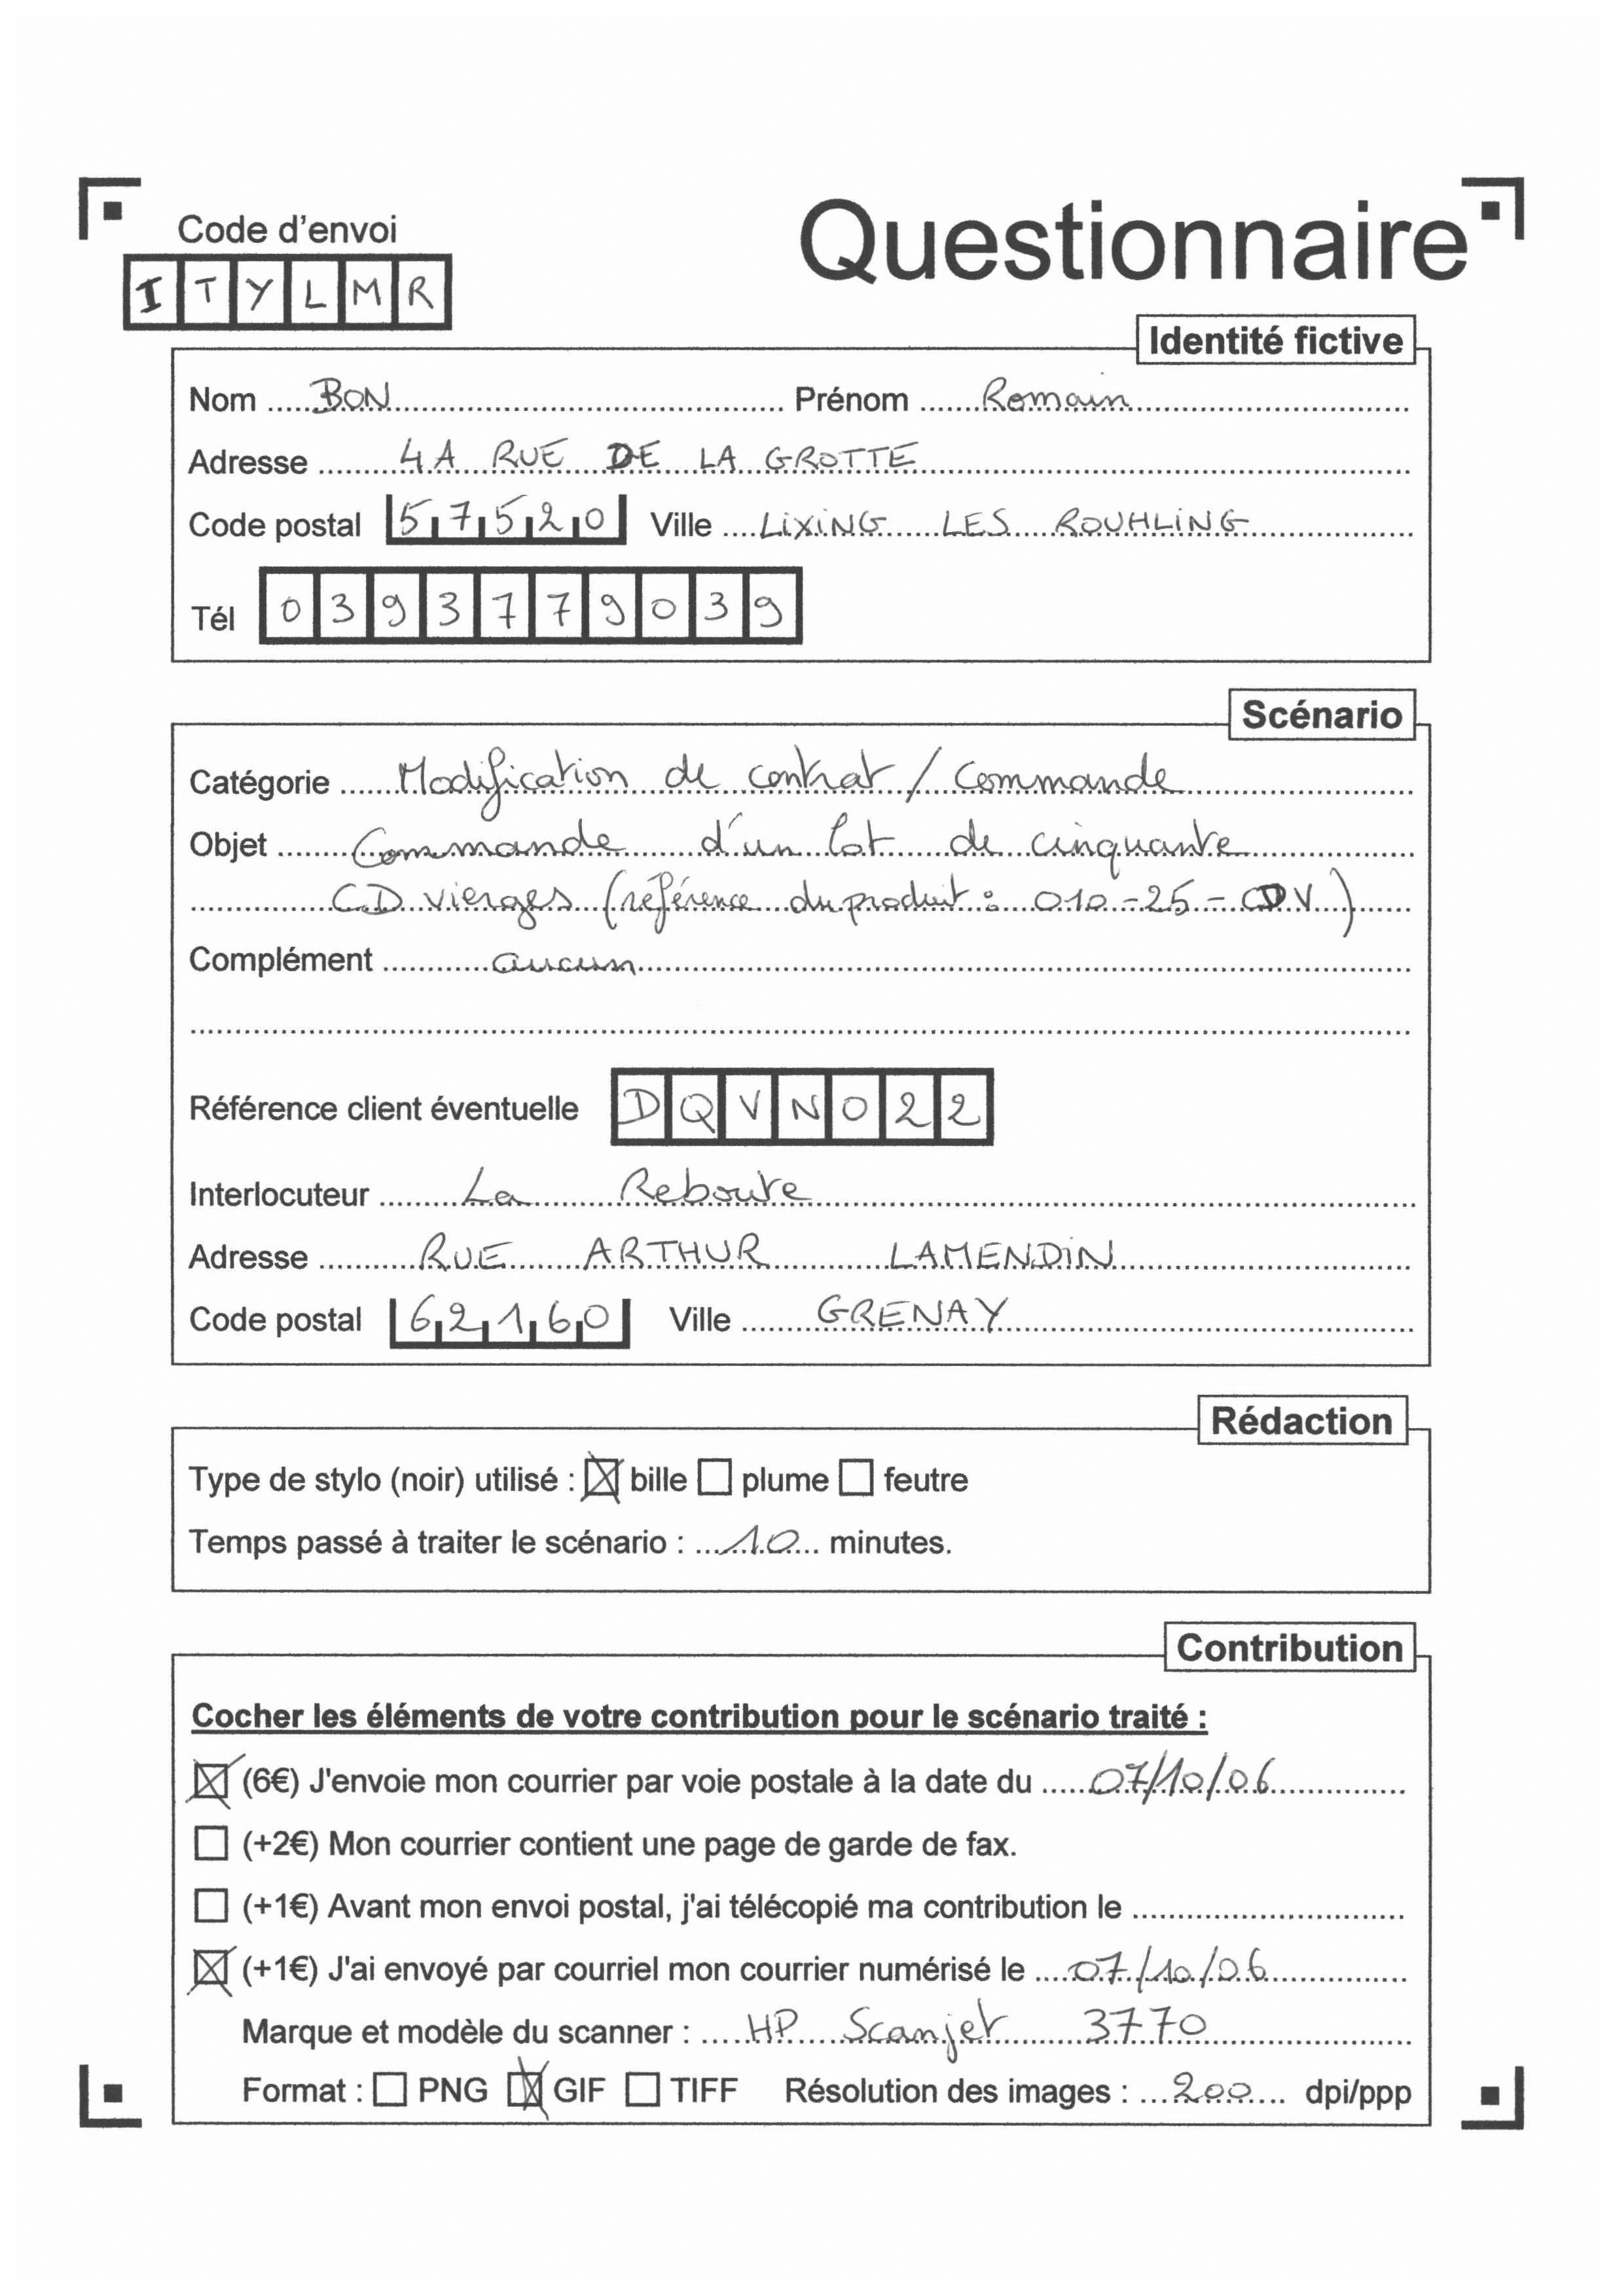 Code d'envoi
Questionnaire
ITYLMR
Identité fictive
Nom BON Prénom Romain
Adresse 4A RUE DE LA GROTTE
Code postal 57520 Ville LIXING LES ROUHLING
Tél 0393779039
Scénario
Catégorie Modification de contrat / Commande
Objet Commande d'un lot de cinquante
CD vierges (référence du produit : 010-25-CDV)
Complément aucun
Référence client éventuelle DQVN022
Interlocuteur La Reboute
Adresse RUE ARTHUR LAMENDIN
Code postal 62160 Ville GRENAY
Rédaction
Type de stylo (noir) utilisé : ☒ bille ☐ plume ☐ feutre
Temps passé à traiter le scénario : 10 minutes.
Contribution
Cocher les éléments de votre contribution pour le scénario traité :
☒ (6€) J'envoie mon courrier par voie postale à la date du 07/10/06
☐ (+2€) Mon courrier contient une page de garde de fax.
☐ (+1€) Avant mon envoi postal, j'ai télécopié ma contribution le
☒ (+1€) J'ai envoyé par courriel mon courrier numérisé le 07/10/06
Marque et modèle du scanner : HP Scanjet 3770
Format : ☐ PNG ☒ GIF ☐ TIFF Résolution des images : 200 dpi/ppp